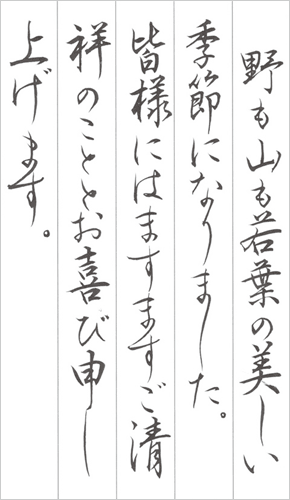 野も山も若葉の美しい
季節になりました。
皆様にはますますご清
祥のこととお喜び申し
上げます。